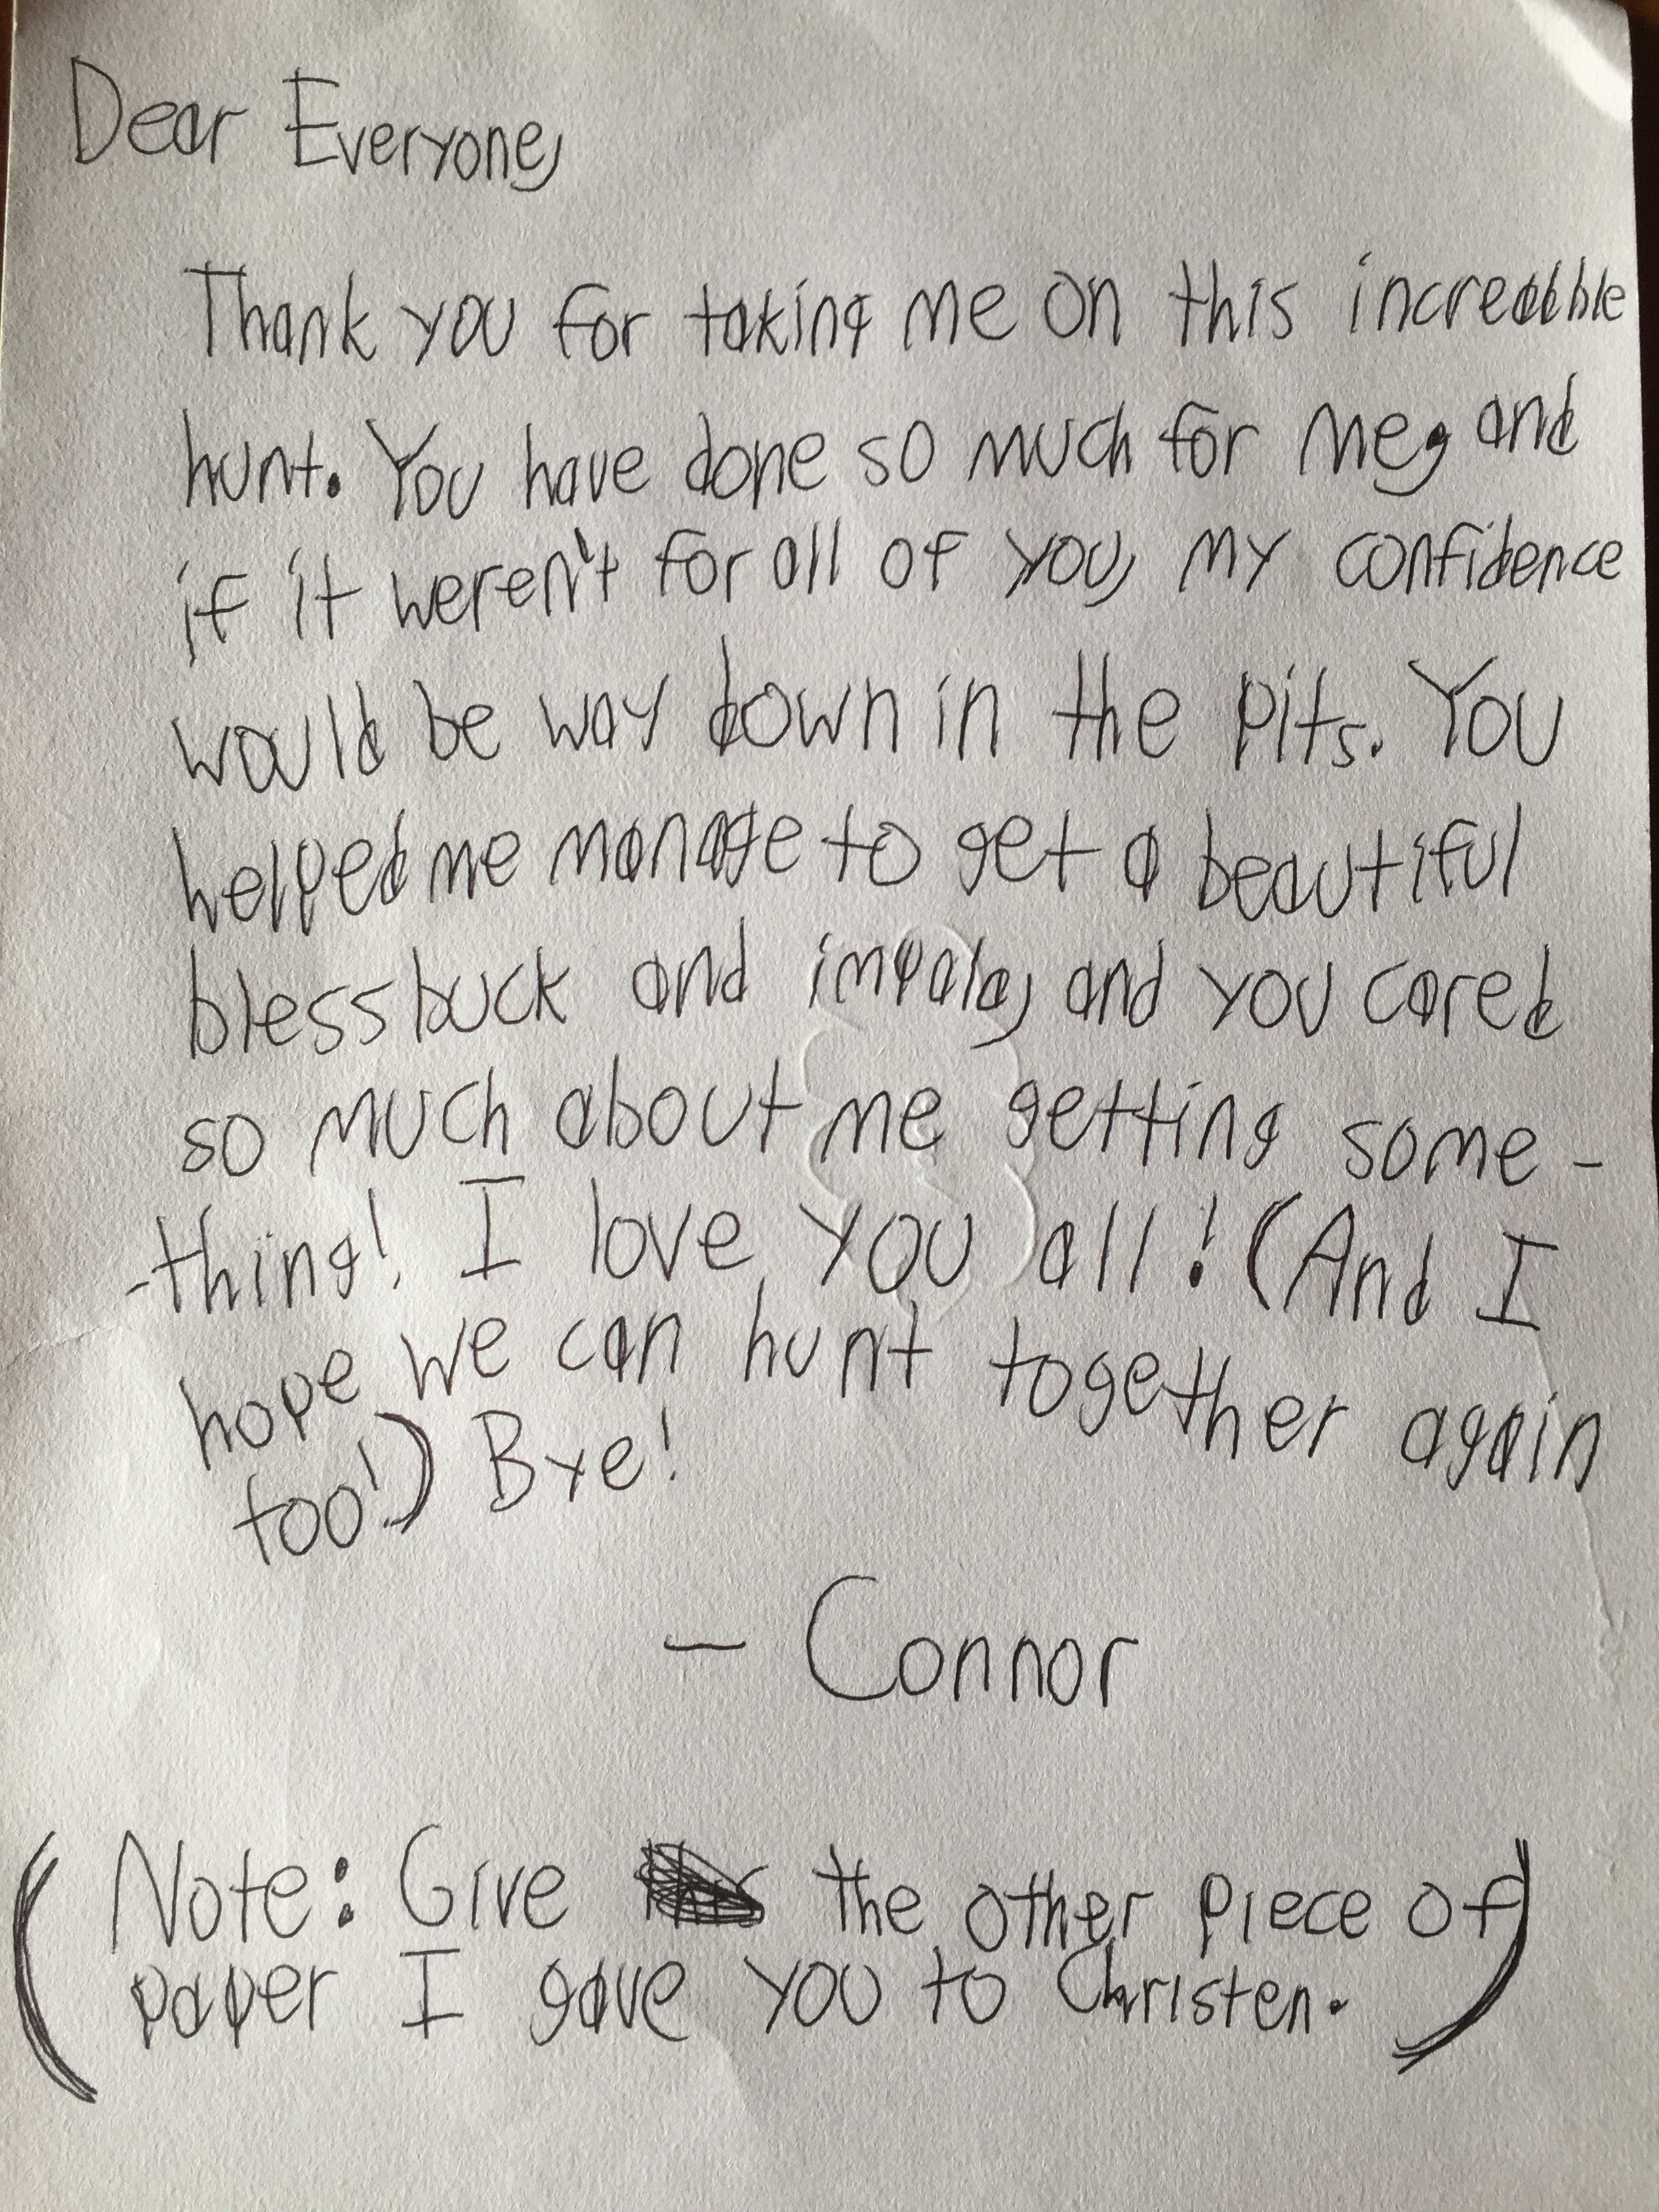 Dear Everyone,
Thank you for taking me on this incredible
hunt. You have done so much for me, and
if it weren't for all of you, my confidence
would be way down in the pits. You
helped me manage to get a beautiful
blessbuck and impala, and you cared
so much about me getting some-
-thing! I love you all! (And I
hope we can hunt together again
too!) Bye!
- Connor
(Note: Give the other piece of
paper I gave you to Christen.)